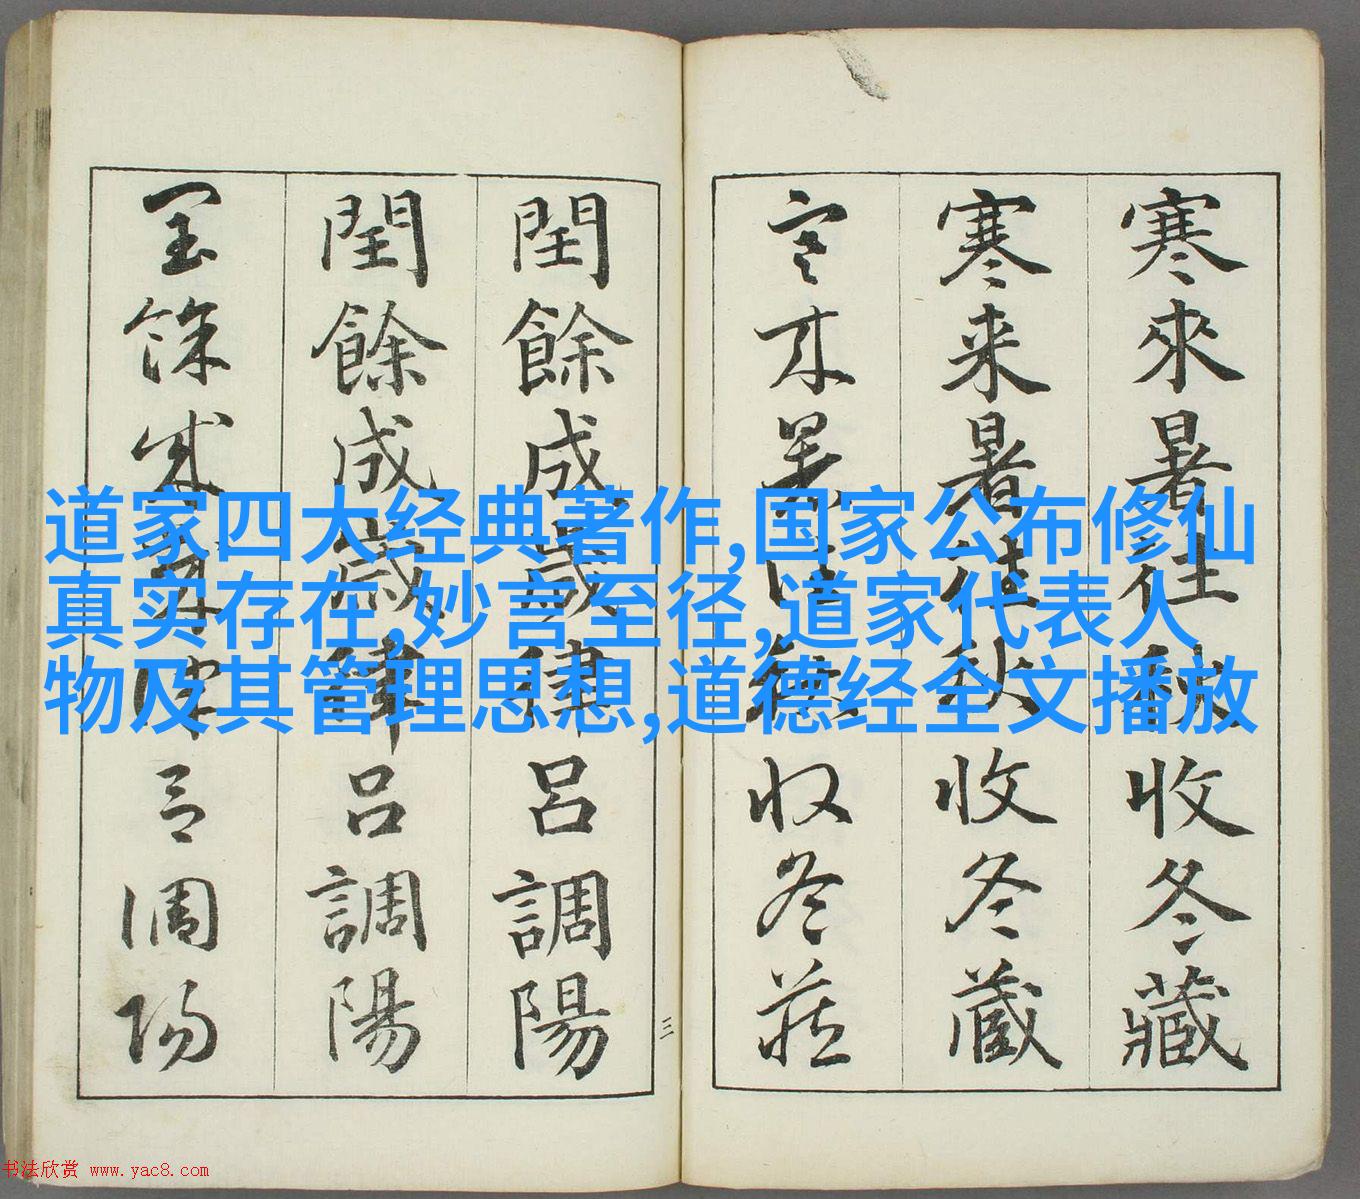 寒來暑往秋收冬藏
寒来暑往秋收冬藏
寒来暑往秋收冬藏
閏餘成歲律呂調陽
閏餘成歲律呂調陽
閏餘成歲律呂調陽
三
道家四大经典著作,国家公布修仙
真实存在,妙言至径,道家代表人
物及其管理思想,道德经全文播放
书法欣赏 www.yac8.com